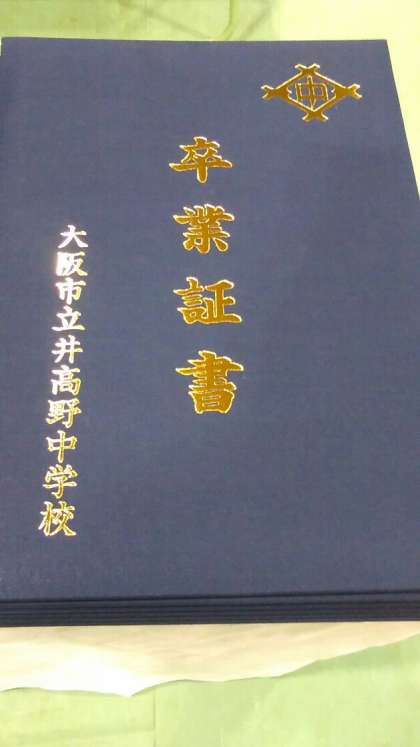 中
卒業証書
大阪市立井高野中学校